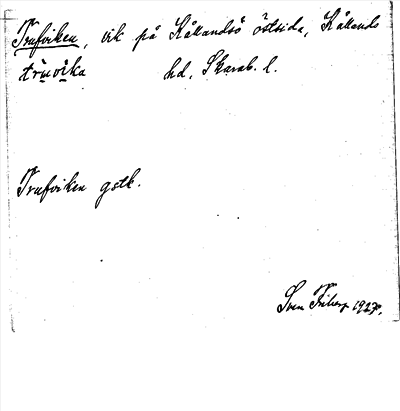 Trufviken, vik på Kållandsö östsida, Kållands
hd, Skarab. l.
Trufviken gstk.
Sven Friberg 1927.